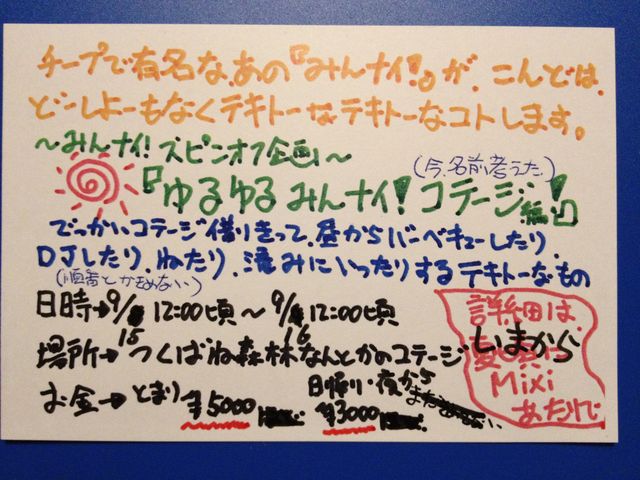 チープで有名な、あの『みんナイ!』が、こんどは、
どーしよーもなくテキトーなテキトーなコトします。
～みんナイ!スピンオフ企画～
(今、名前考えた)
『ゆるゆるみんナイ!コテージ編!』
でっかいコテージ借りきって、昼からバーベキューしたり
DJしたり、ねたり、滝みにいったりするテキトーなもの
(順番とかきめない)
日時→9/15 12:00頃～9/16 12:00頃
場所→つくばね森林なんとかのコテージ
お金→とまり ¥5000 日帰り・夜から ¥3000
詳細は、
いまから
Mixi
あたりで